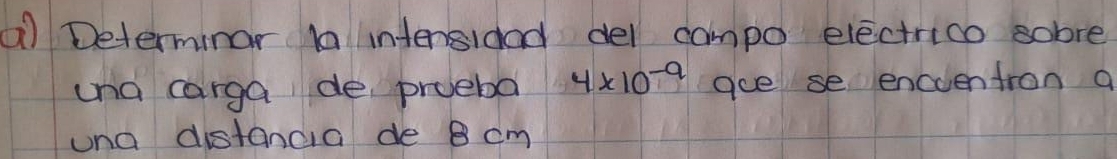 a) Determinar la intensidad del campo eléctrico sobre
una carga de prueba 4x10⁻⁹ que se encuentran a
una distancia de 8 cm